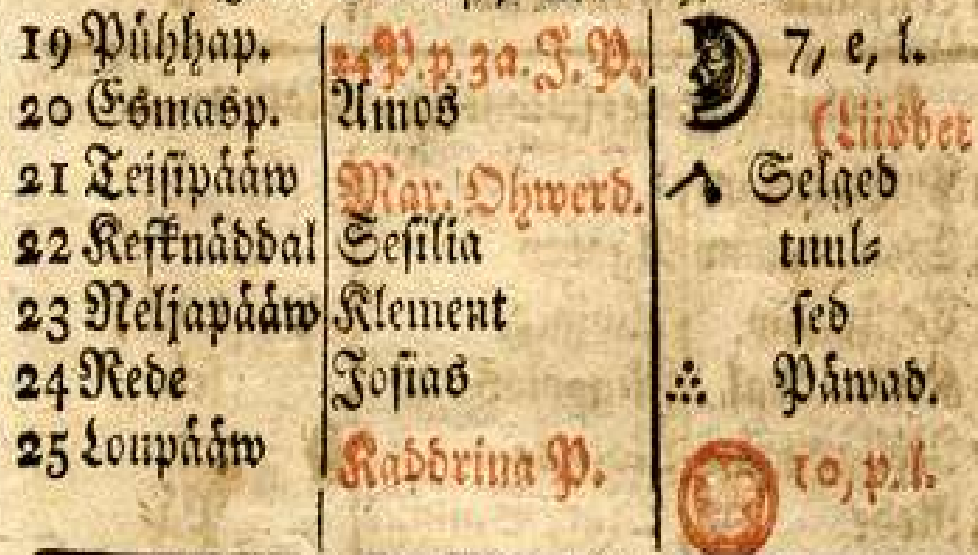 19 Pühhap. 24 P. p. 3 a. J. P. 7, e, l.
20 Esmasp. Amos (Liisbet
21 Teisipääw Mar. Ohwerd. Selged
22 Kesknäddal Sesilia tuul⸗
23 Neljapääw Klement sed
24 Rede Josias Päwad.
25 Loupääw Kaddrina P. 10, p. l.